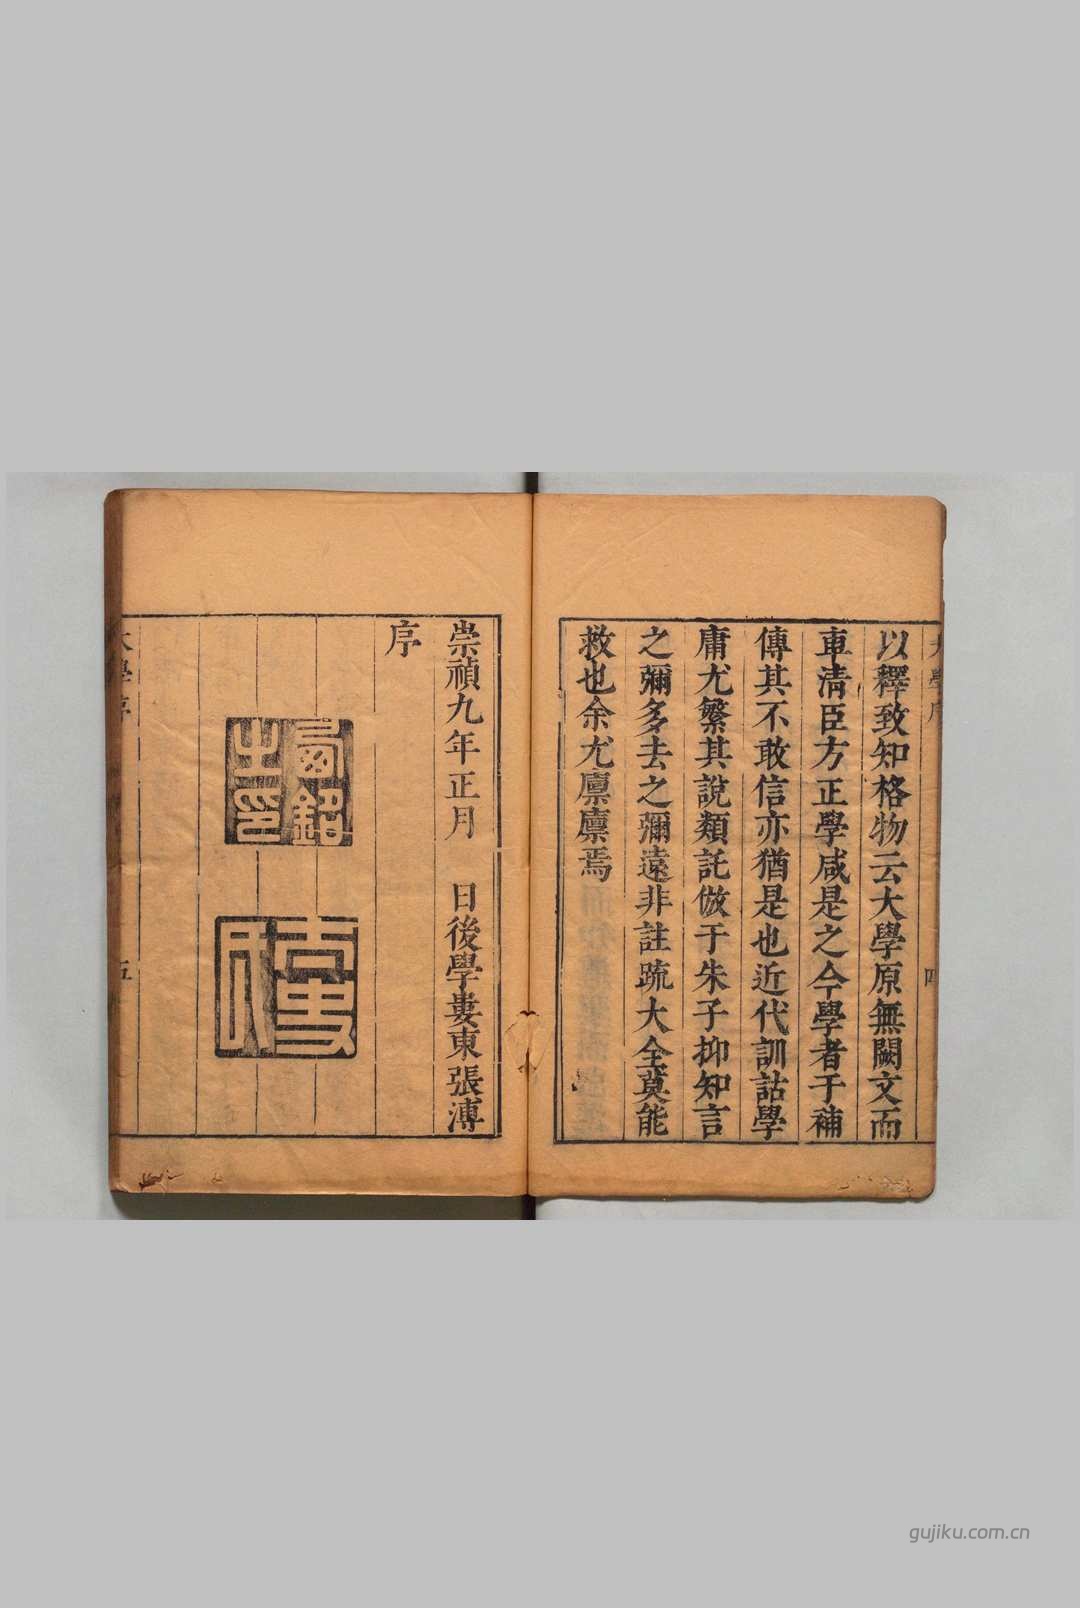 以釋致知格物云大學原無闕文而
車清臣方正學咸是之今學者于補
傳其不敢信亦猶是也近代訓詁學
庸尤繁其說類託倣于朱子抑知言
之彌多去之彌遠非註疏大全莫能
救也余尤廩廩焉
大學序
四
崇禎九年正月 日後學婁東張溥
序
大學序
五
gujiku.com.cn